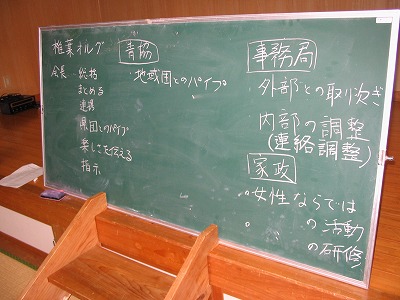 椎葉オルグ
会長 総括
まとめる
連携
県団とのパイプ
楽しさを伝える
指示
青協
・地域団とのパイプ
事務局
・外部との取り次ぎ
・内部の調整
(連絡調整)
家政
・女性ならでは
・の活動
の研修